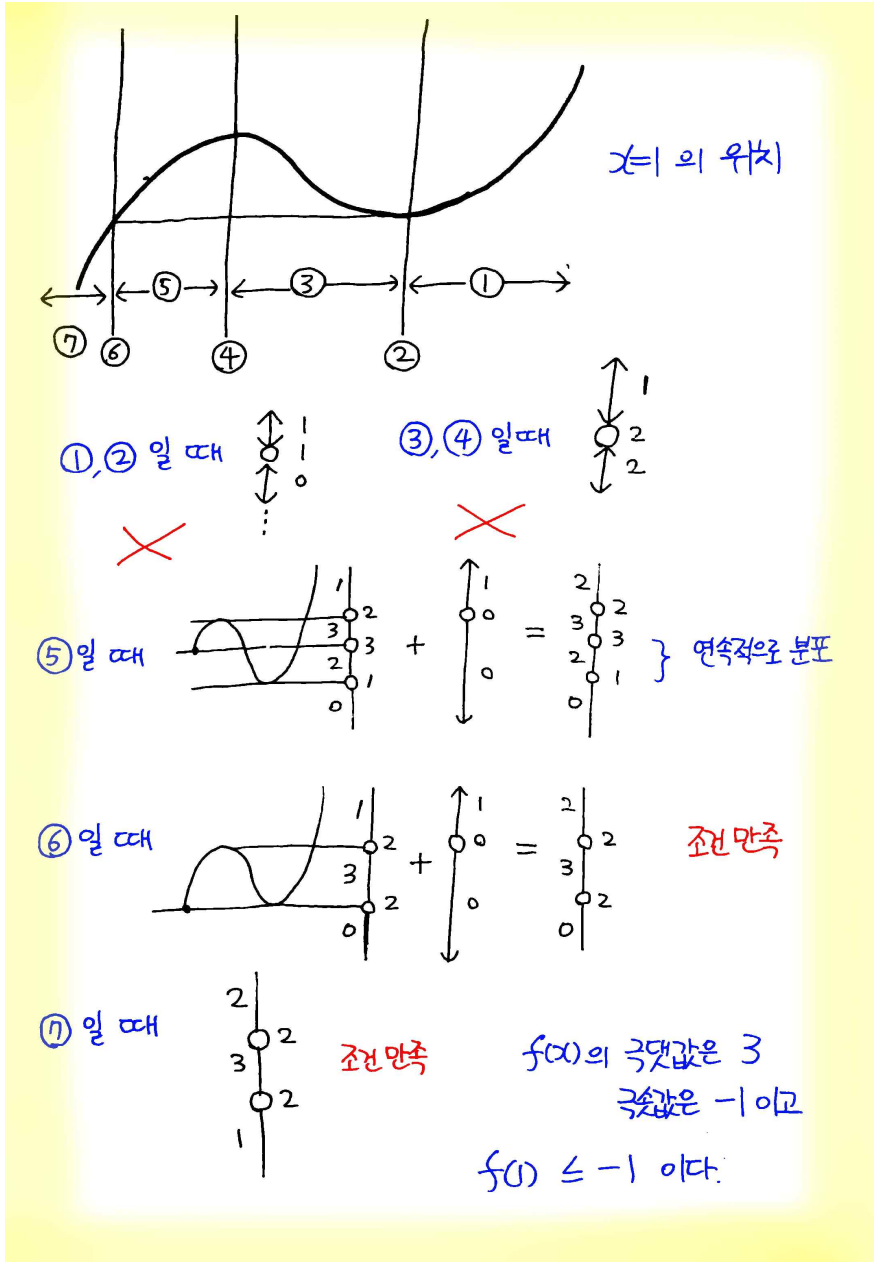 x=1 의 위치
⑤ ③ ①
⑦ ⑥ ④ ②
①,② 일 때
1
1
0
⋮
③,④ 일때
1
2
2
⑤일 때
1
2
3
3
2
1
0
+
1
0
0
=
2
2
3
3
2
1
0
} 연속적으로 분포
⑥일 때
1
2
3
2
0
+
1
0
0
=
2
2
3
2
0
조건 만족
⑦ 일 때
2
2
3
2
1
조건 만족
f(x)의 극댓값은 3
극솟값은 -1 이고
f(1) ≤ -1 이다.